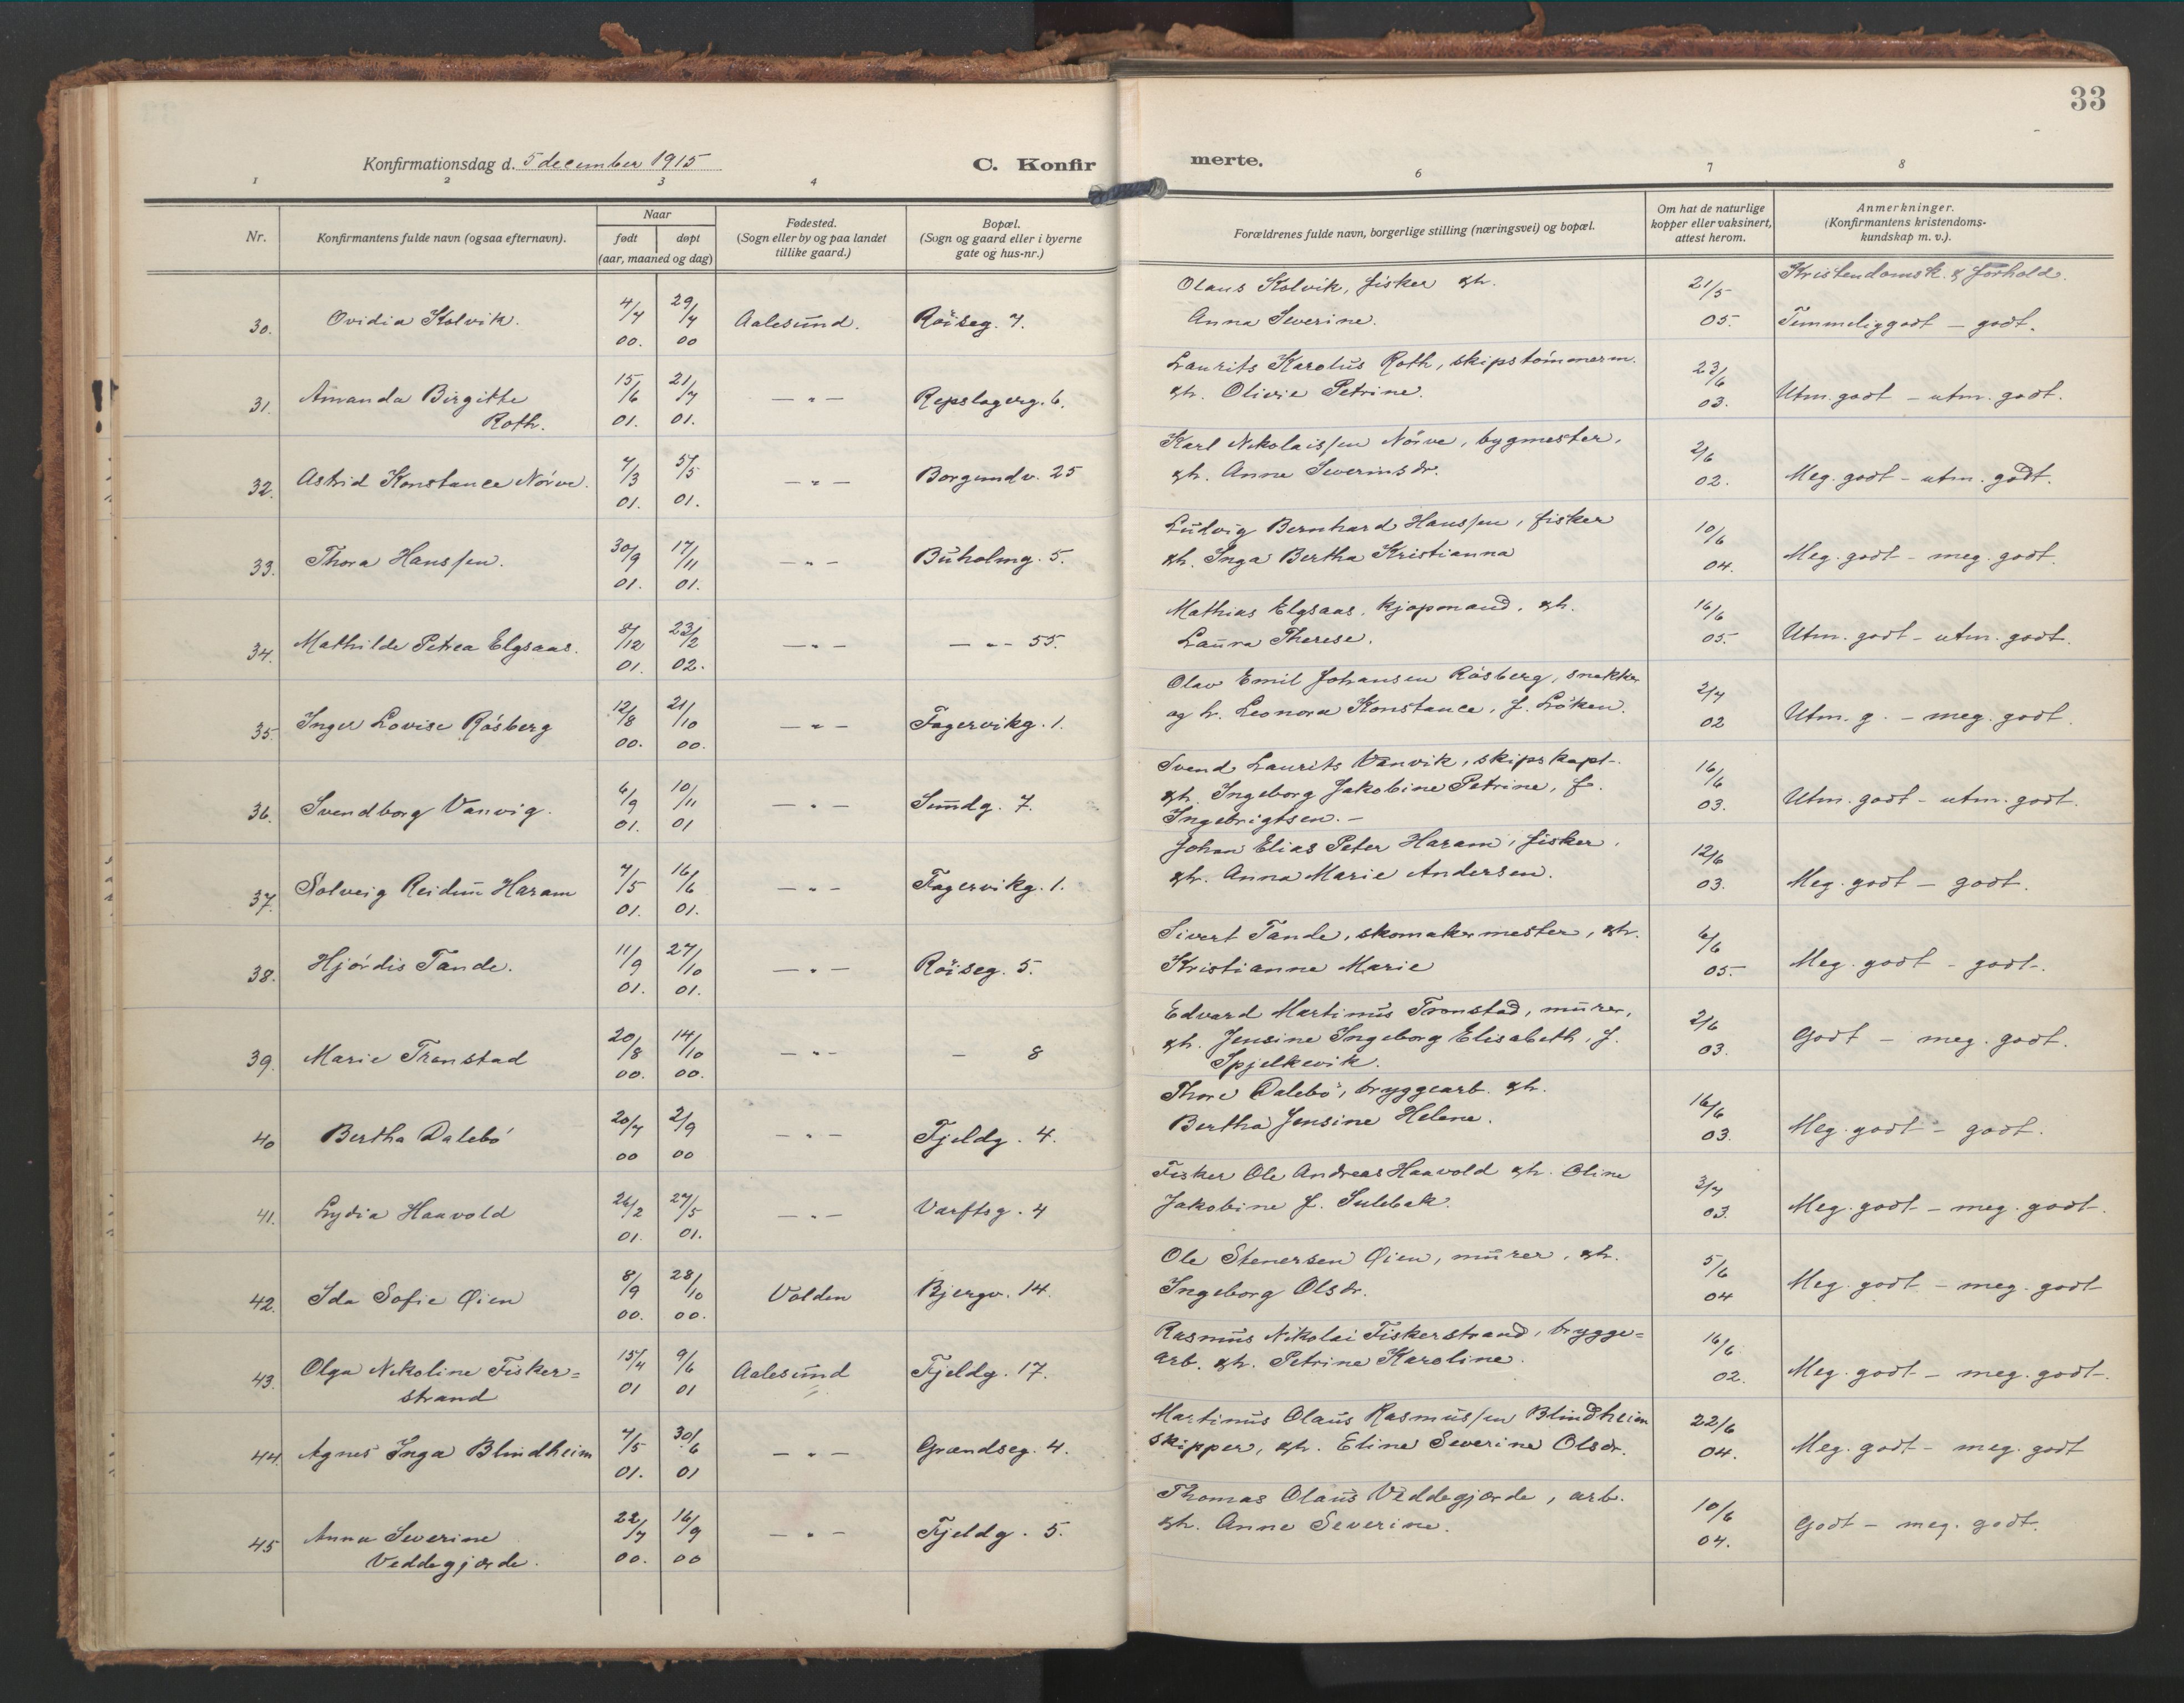 33
Konfirmationsdag d. 5 december 1915
C. Konfirmerte.
1 2 3 4 6 7 8
Nr.
Konfirmantens fulde navn (ogsaa efternavn).
Naar
født døpt
(aar, maaned og dag)
Fødested.
(Sogn eller by og paa landet
tillike gaard.)
Bopæl.
(Sogn og gaard eller i byerne
gate og hus-nr.)
Forældrenes fulde navn, borgerlige stilling (næringsvei) og bopæl.
Om hat de naturlige
kopper eller vaksinert,
attest herom.
Anmerkninger.
(Konfirmantens kristendoms-
kundskap m. v.).
Kristendomsk. & forhold.
30. Ovidia Kolvik. 4/7 00. 29/7 00 Aalesund. Röiseg. 7.
Olaus Kolvik, fisker & h.
Anna Severine.
21/5 05. Temmelig godt — godt.
31. Amanda Birgitte
Roth. 15/6 01. 21/7 01. — " — Repslagerg. 6.
Laurits Karolus Roth, skipstömmerm.
& h. Olivie Petrine.
23/6 03. Utm. godt — utm. godt.
32. Astrid Konstance Nörve. 7/3 01. 5/5 01. — " — Borgundv. 25
Karl Nikolaissen Nörve, bygmester,
& h. Anne Severinsdr.
2/6 02. Meg. godt — utm. godt.
33. Thora Hanssen. 30/9 01. 17/11 01. — " — Buholmg. 5.
Ludvig Bernhard Hanssen, fisker
& h. Inga Bertha Kristianna
10/6 04. Meg. godt — meg. godt.
34. Mathilde Petrea Elgsaas. 8/12 01. 23/2 02. — " — — " — 55.
Mathias Elgsaas, kjøpmand, & h.
Laura Therese.
16/6 05. Utm. godt — utm. godt.
35. Inger Lovise Rösberg 12/8 00. 21/10 00. — " — Fagervikg. 1.
Olav Emil Johansen Rösberg, snekker
og h. Leonora Konstance, f. Löken.
2/7 02 Utm. g. — meg. godt.
36. Svendborg Vanvig. 6/9 01. 10/11 01 — " — Sundg. 7.
Svend Laurits Vanvik, skipskapt.
& h. Ingeborg Jakobine Petrine, f.
Ingebrigtsen. —
16/6 03. Utm. godt — utm. godt.
37. Solveig Reidun Haram 7/5 01. 16/6 01. — " — Fagervikg. 1.
Johan Elias Peter Haram, fisker,
& h. Anna Marie Andersen.
12/6 03. Meg. godt — godt.
38. Hjördis Tande. 11/9 01. 27/10 01. — " — Röiseg. 5.
Sivert Tande, skomakermester, & h.
Kristianne Marie
6/6 05. Meg. godt — godt.
39. Marie Tronstad 20/8 00. 14/10 00. — " — — 8
Edvard Martinus Tronstad, murer,
& h. Jensine Ingeborg Elisabeth, f.
Spjelkevik.
2/6 03. Godt — meg. godt.
40 Bertha Dalebö 20/7 00 2/9 00 — " — Fjeldg. 4.
Thore Dalebö, bryggearb. & h.
Bertha Jensine Helene.
16/6 03. Meg. godt — godt.
41. Lydia Haavold 26/2 01. 27/5 01. — " — Varftsg. 4
Fisker Ole Andreas Haavold & h. Oline
Jakobine f. Sulebak.
3/7 03. Meg. godt — meg. godt.
42. Ida Sofie Øien 8/9 00. 28/10 00. Volden Bjergv. 14.
Ole Stenersen Øien, murer, & h.
Ingeborg Olsdr.
5/6 04 Meg. godt — meg. godt
43. Olga Nikoline Fisker=
strand 15/4 01 9/6 01 Aalesund Fjeldg. 17.
Rasmus Nikolai Fiskerstrand, brygge=
arb. & h. Petrine Karoline.
16/6 02. Meg. godt — meg. godt.
44. Agnes Inga Blindheim 7/5 01. 30/6 01 — " — Grændseg. 4.
Martinus Olaus Rasmussen Blindheim
skipper, & h. Eline Severine Olsdr.
22/6 04. Meg. godt — meg. godt
45 Anna Severine
Veddegjærde. 22/7 00. 16/9 00 — " — Fjeldg. 5.
Thomas Olaus Veddegjærde, arb.
& h. Anne Severine.
10/6 04. Godt — meg. godt.